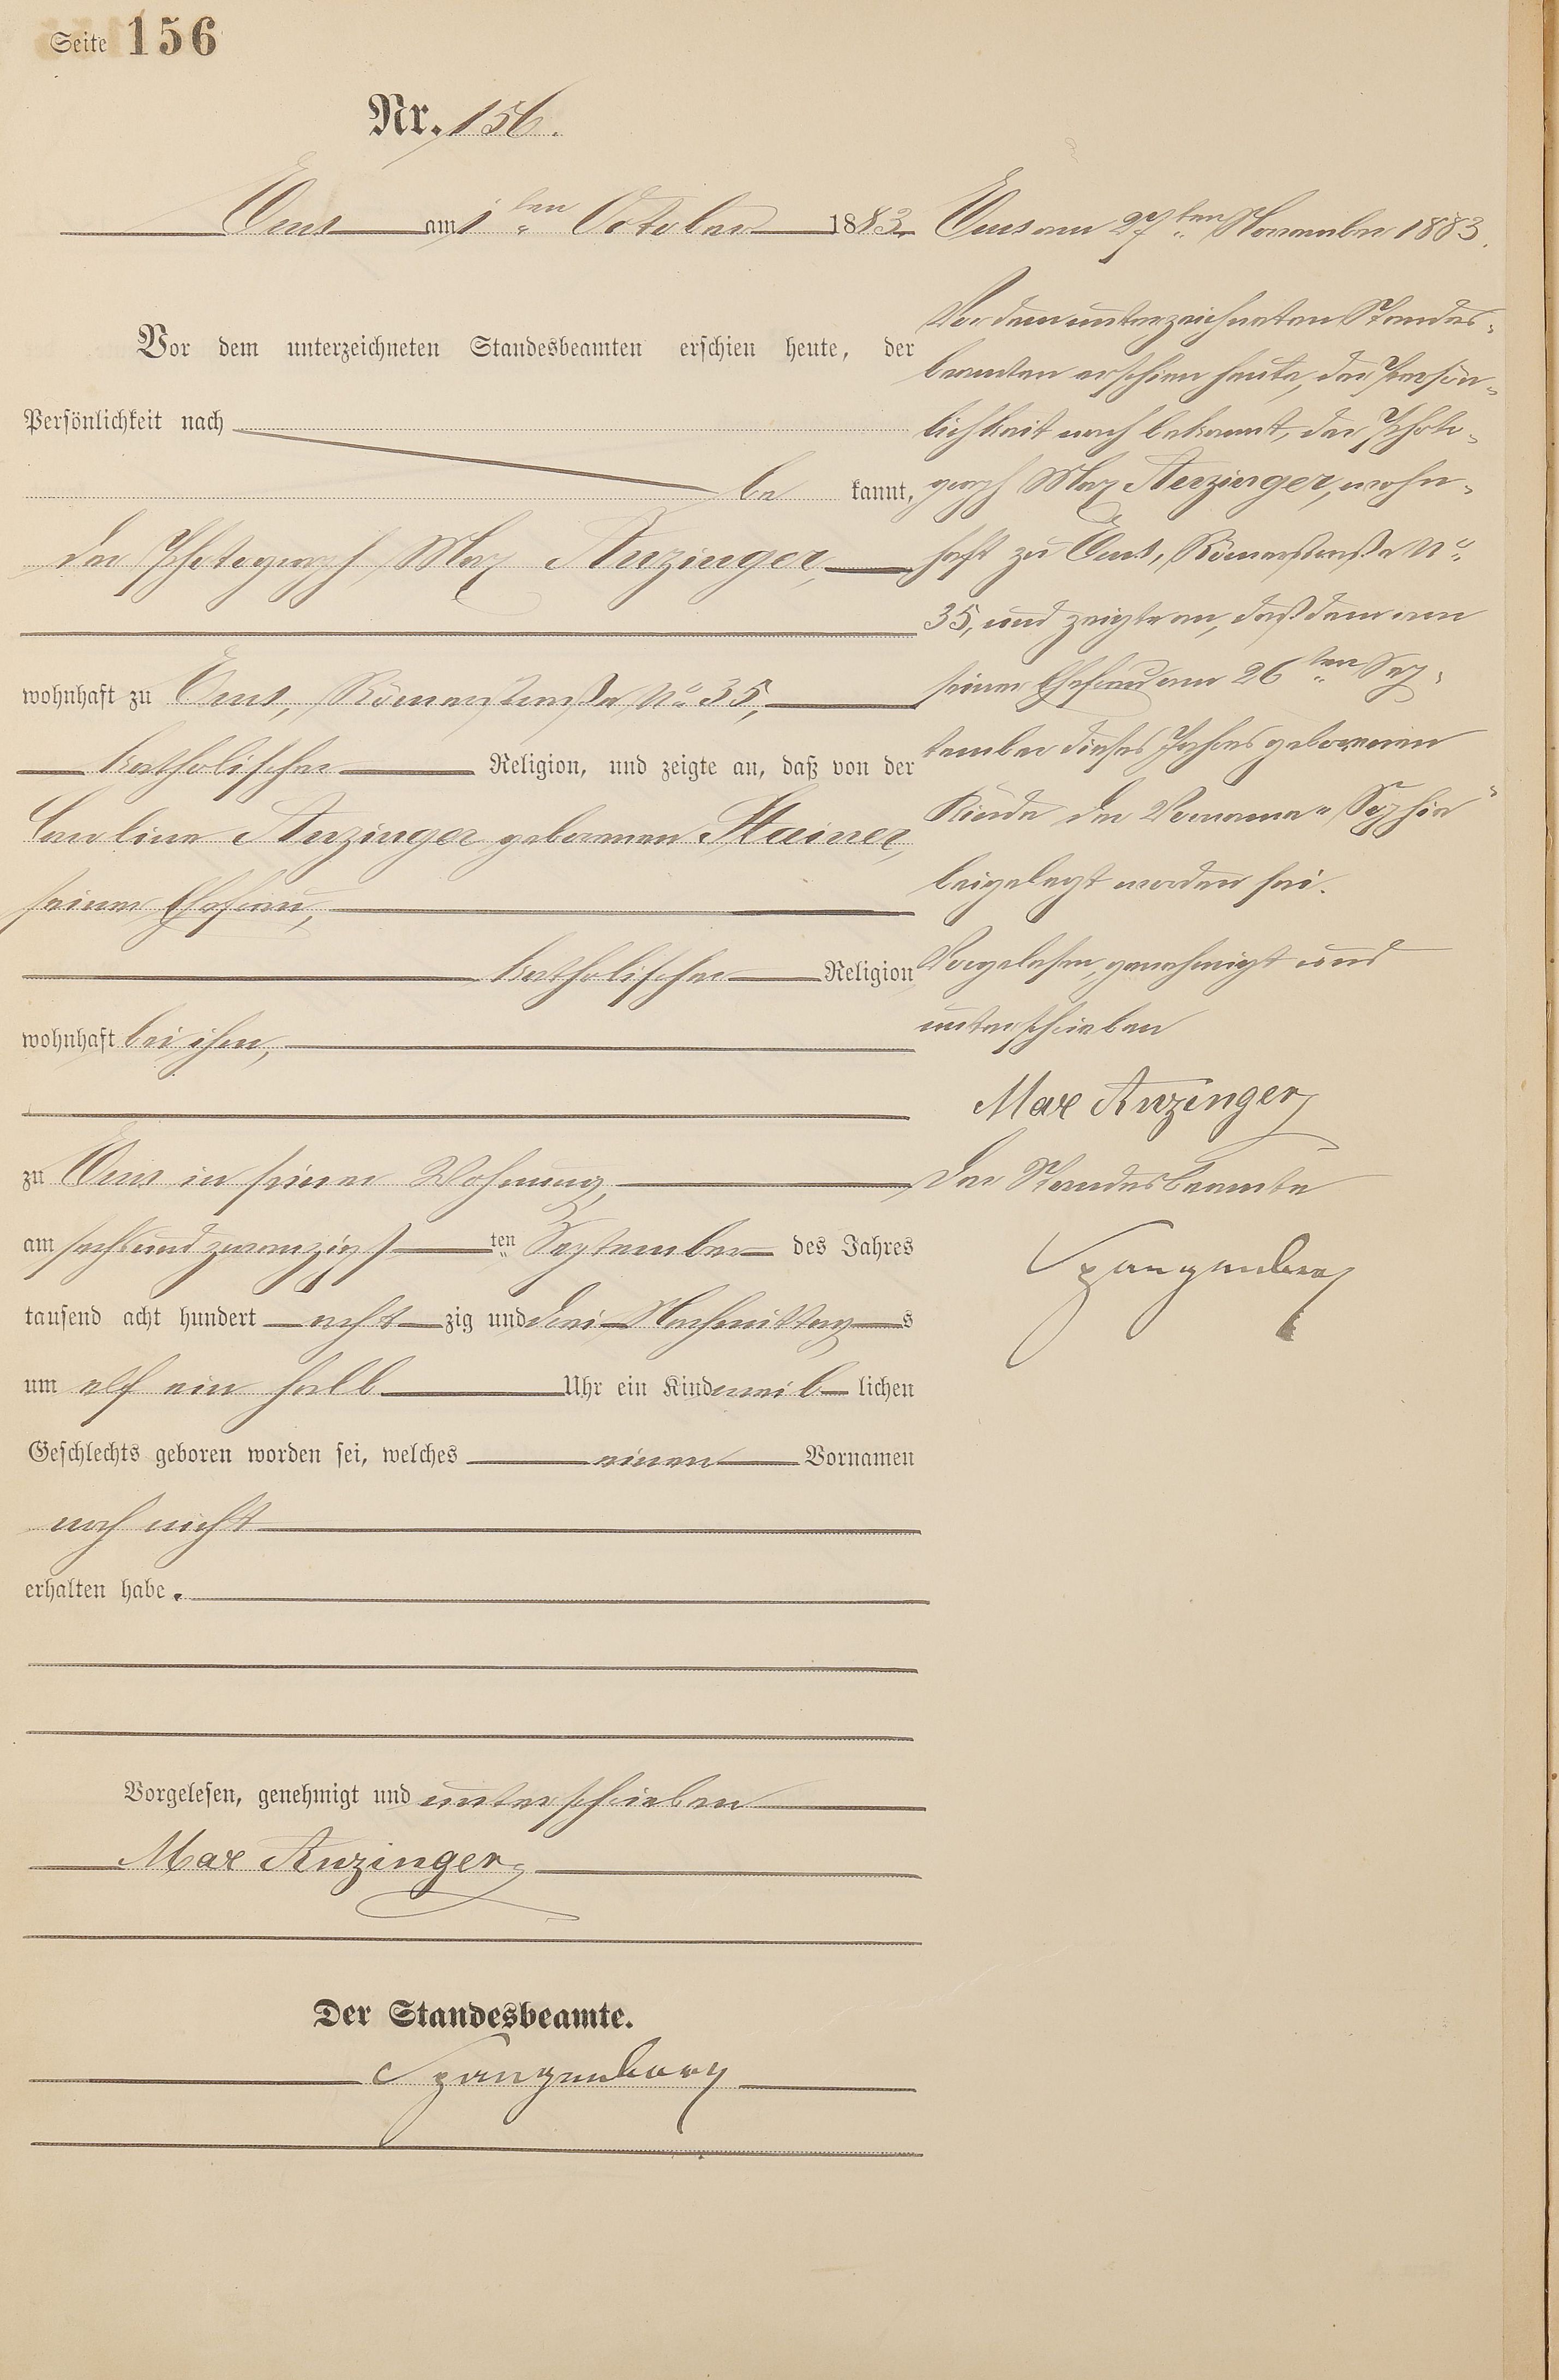 Seite 156
Nr. 156.
Ems am 1ten October 1883.
Vor dem unterzeichneten Standesbeamten erschien heute, der
Persönlichkeit nach
be kannt,
der Photograph Max Anzinger,
wohnhaft zu Ems, Römerstraße No 35,
katholischer Religion, und zeigte an, daß von der
Caroline Anzinger geborenen Stainer,
seiner Ehefrau,
katholischer Religion
wohnhaft bei ihm,
zu Ems in seiner Wohnung,
am sechsundzwanzigsten September des Jahres
tausend acht hundert acht zig und drei Nachmittags
um elf ein halb Uhr ein Kind weib lichen
Geschlechts geboren worden sei, welches einen Vornamen
noch nicht
erhalten habe.
Vorgelesen, genehmigt und unterschrieben
Max Anzinger
Der Standesbeamte.
Spangenberg
Ems am 27ten November 1883.
Vor dem unterzeichneten Standes-
beamten erschien heute, der Persön-
lichkeit nach bekannt, der Photo-
graph Max Anzinger, wohn-
haft zu Ems, Römerstraße No
35, und zeigte an, daß dem von
seiner Ehefrau am 26ten Sep-
tember dieses Jahres geborenen
Kinde der Vorname "Sophie"
beigelegt worden sei.
Vorgelesen, genehmigt und
unterschrieben
Max Anzinger
Der Standesbeamte
Spangenberg